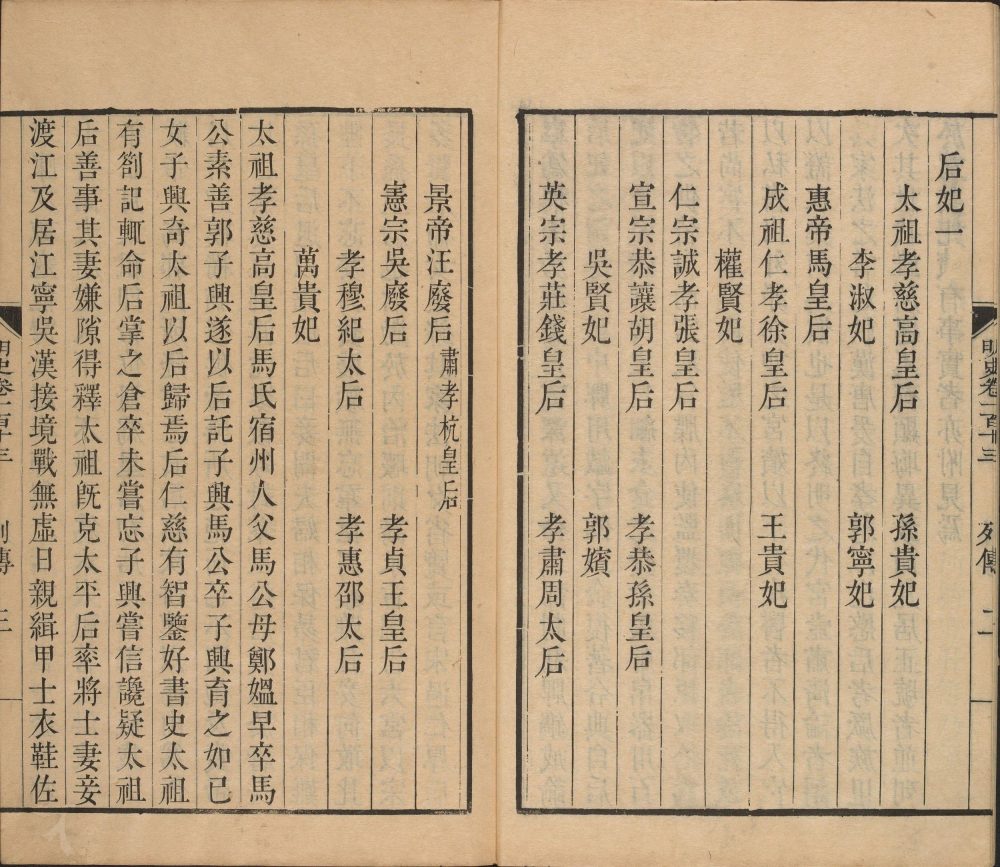 后妃一
太祖孝慈高皇后　孫貴妃
李淑妃　郭寧妃
惠帝馬皇后
成祖仁孝徐皇后　王貴妃
權賢妃
仁宗誠孝張皇后
宣宗恭讓胡皇后　孝恭孫皇后
吳賢妃　郭嬪
英宗孝莊錢皇后　孝肅周太后
景帝汪廢后　肅孝杭皇后
憲宗吳廢后　孝貞王皇后
孝穆紀太后　孝惠邵太后
萬貴妃
太祖孝慈高皇后馬氏宿州人父馬公母鄭媼早卒馬
公素善郭子興遂以后託子興馬公卒子興育之如己
女子興奇太祖以后歸焉后仁慈有智鑒好書史太祖
有劄記輒命后掌之倉卒未嘗忘子興嘗信讒疑太祖
后善事其妻嫌隙得釋太祖旣克太平后率將士妻妾
渡江及居江寧吳漢接境戰無虛日親緝甲士衣鞋佐
明史卷一百十三　列傳　二
明史卷一百十三　列傳　三